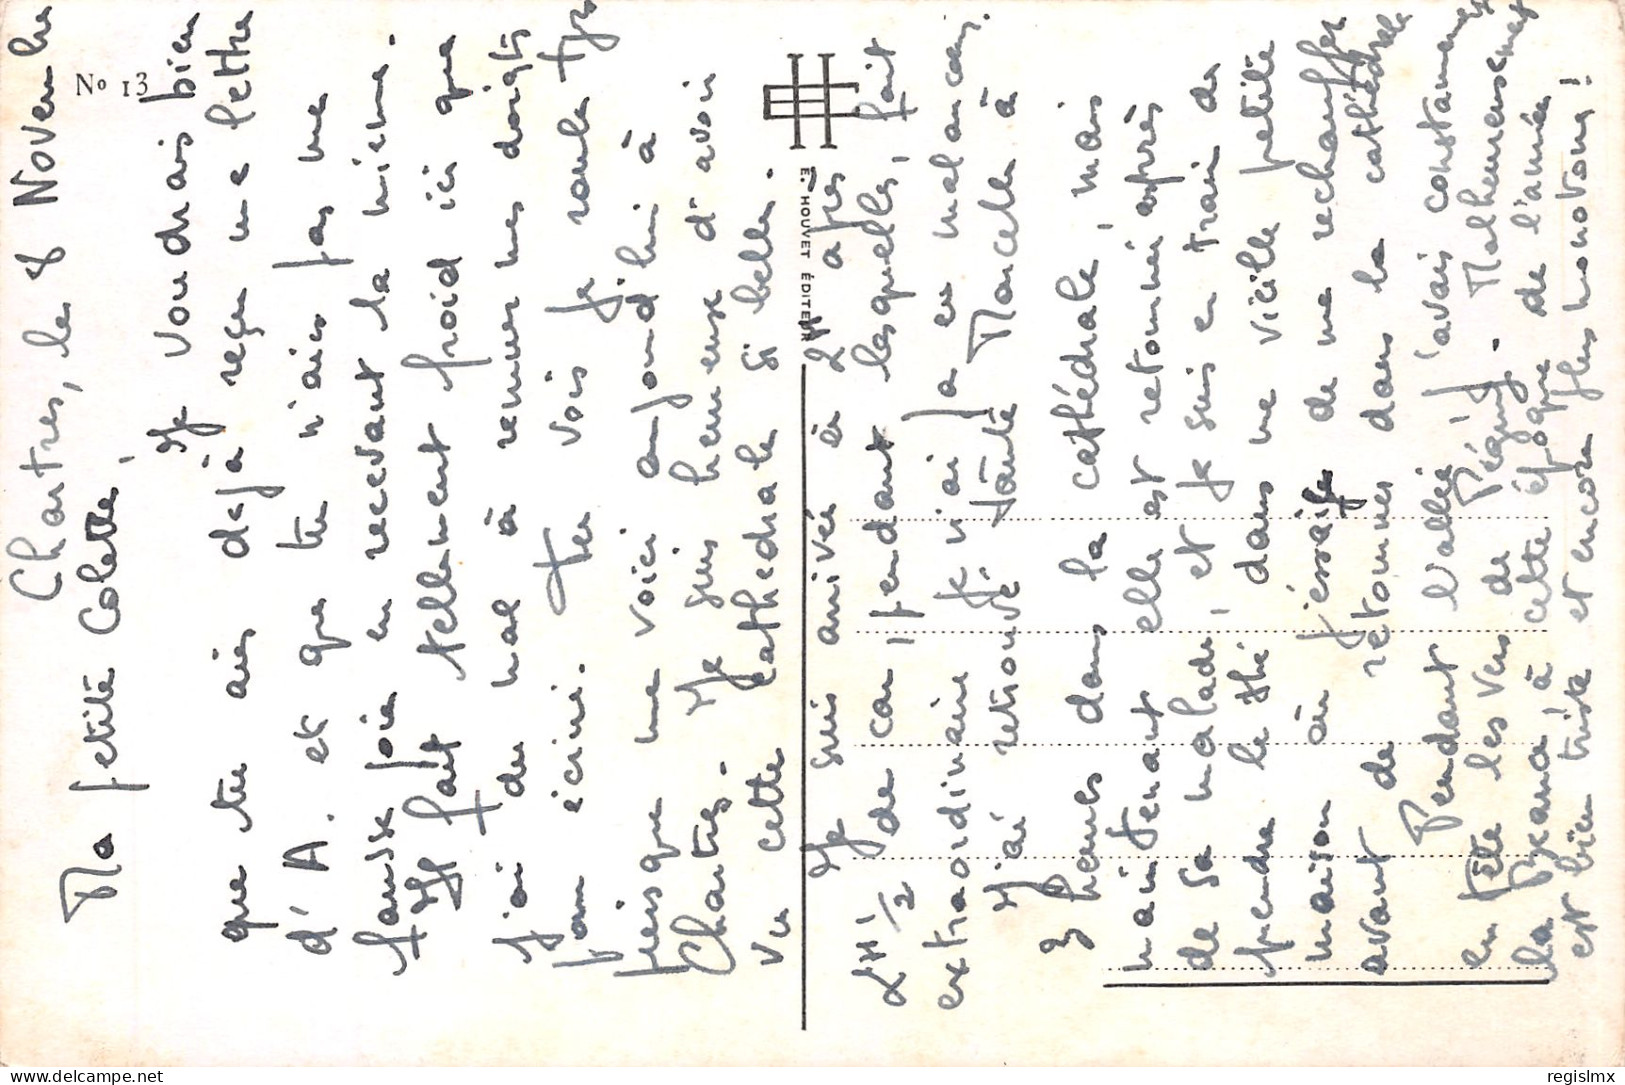 Chartres, le 8 Novembre
Ma petite Colette,
Je voudrais bien
que tu aies déjà reçu une lettre
d'A. et que tu n'aies pas une
fausse joie en recevant la mienne.
Il fait tellement froid ici que
j'ai du mal à remuer mes doigts
pour écrire. Tu vois je
puisque me voici aujourd'hui à
Chartres. Je suis heureuse d'avoir
vu cette cathédrale si belle.
Je suis arrivée à 2H après
2H ½ de car, pendant lesquelles, fait
extraordinaire je n'ai pas eu mal au cœur.
J'ai retrouvé tante Marcelle à
3 heures dans la cathédrale, mais
maintenant elle est retournée après
de sa malade, et je suis en train de
prendre le thé dans une vieille petite
maison où j'essaie de me réchauffer
avant de retourner dans la cathédrale
Pendant l'allée j'avais constamment
en tête les vers de Péguy. Malheureusement
la Beauce à cette époque de l'année
est bien triste et encore plus monotone!
No 13
E. HOUVET ÉDITEUR
regislmx